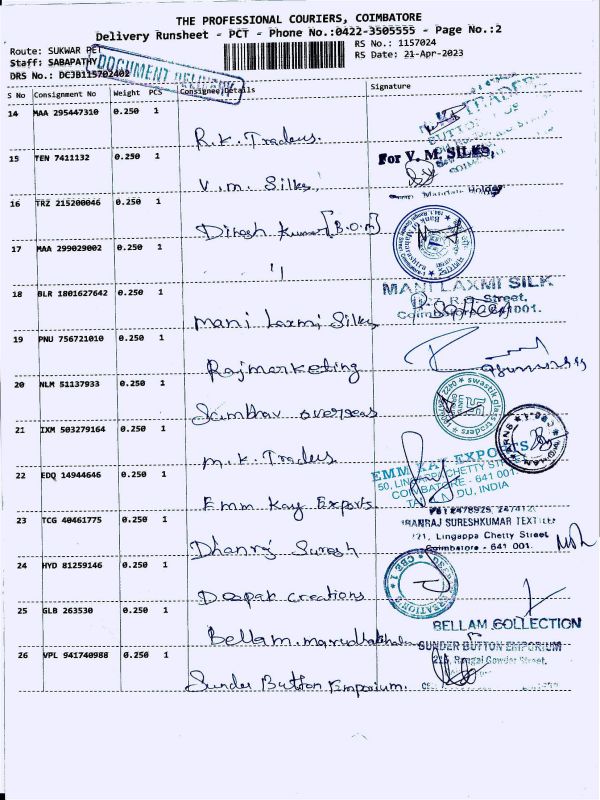 THE PROFESSIONAL COURIERS, COIMBATORE
Delivery Runsheet - PCT - Phone No.:0422-3505555 - Page No.:2
Route: SUKWAR PET
RS No.: 1157024
Staff: SABAPATHY
RS Date: 21-Apr-2023
DRS No.: DCJB115702402
DOCUMENT DELIVERY
S No Consignment No Weight PCS Consignee Details Signature
14 MAA 295447310 0.250 1
R.K. Traders.
R.K. TRADERS
15 TEN 7411132 0.250 1
For V. M. SILKS,
V.M. Silks,
16 TRZ 215200046 0.250 1
Dinesh Kumar [B.O.M]
Bank of Maharashtra
17 MAA 299029002 0.250 1
"
18 BLR 1801627642 0.250 1
MANI LAXMI SILK
Street,
Coimbatore 641001.
Mani Laxmi Silks
19 PNU 756721010 0.250 1
Rajmarketing
20 NLM 51137933 0.250 1
swastik glass traders
Sambhav overseas
21 IXM 503279164 0.250 1
M.K. Traders
22 EDQ 14944646 0.250 1
EMM KAY EXPORTS
50, LINGAPPA CHETTY STREET
COIMBATORE - 641 001
TAMIL NADU, INDIA
Emm Kay Exports
23 TCG 40461775 0.250 1
DHANRAJ SURESHKUMAR TEXTILES
Lingappa Chetty Street
Coimbatore - 641 001.
Dhanraj Suresh
24 HYD 81259146 0.250 1
Deepak creations
25 GLB 263530 0.250 1
BELLAM COLLECTION
Bellam.
26 VPL 941740988 0.250 1
SUNDER BUTTON EMPORIUM
Rangai Gowder Street,
Sunder Button Emporium.